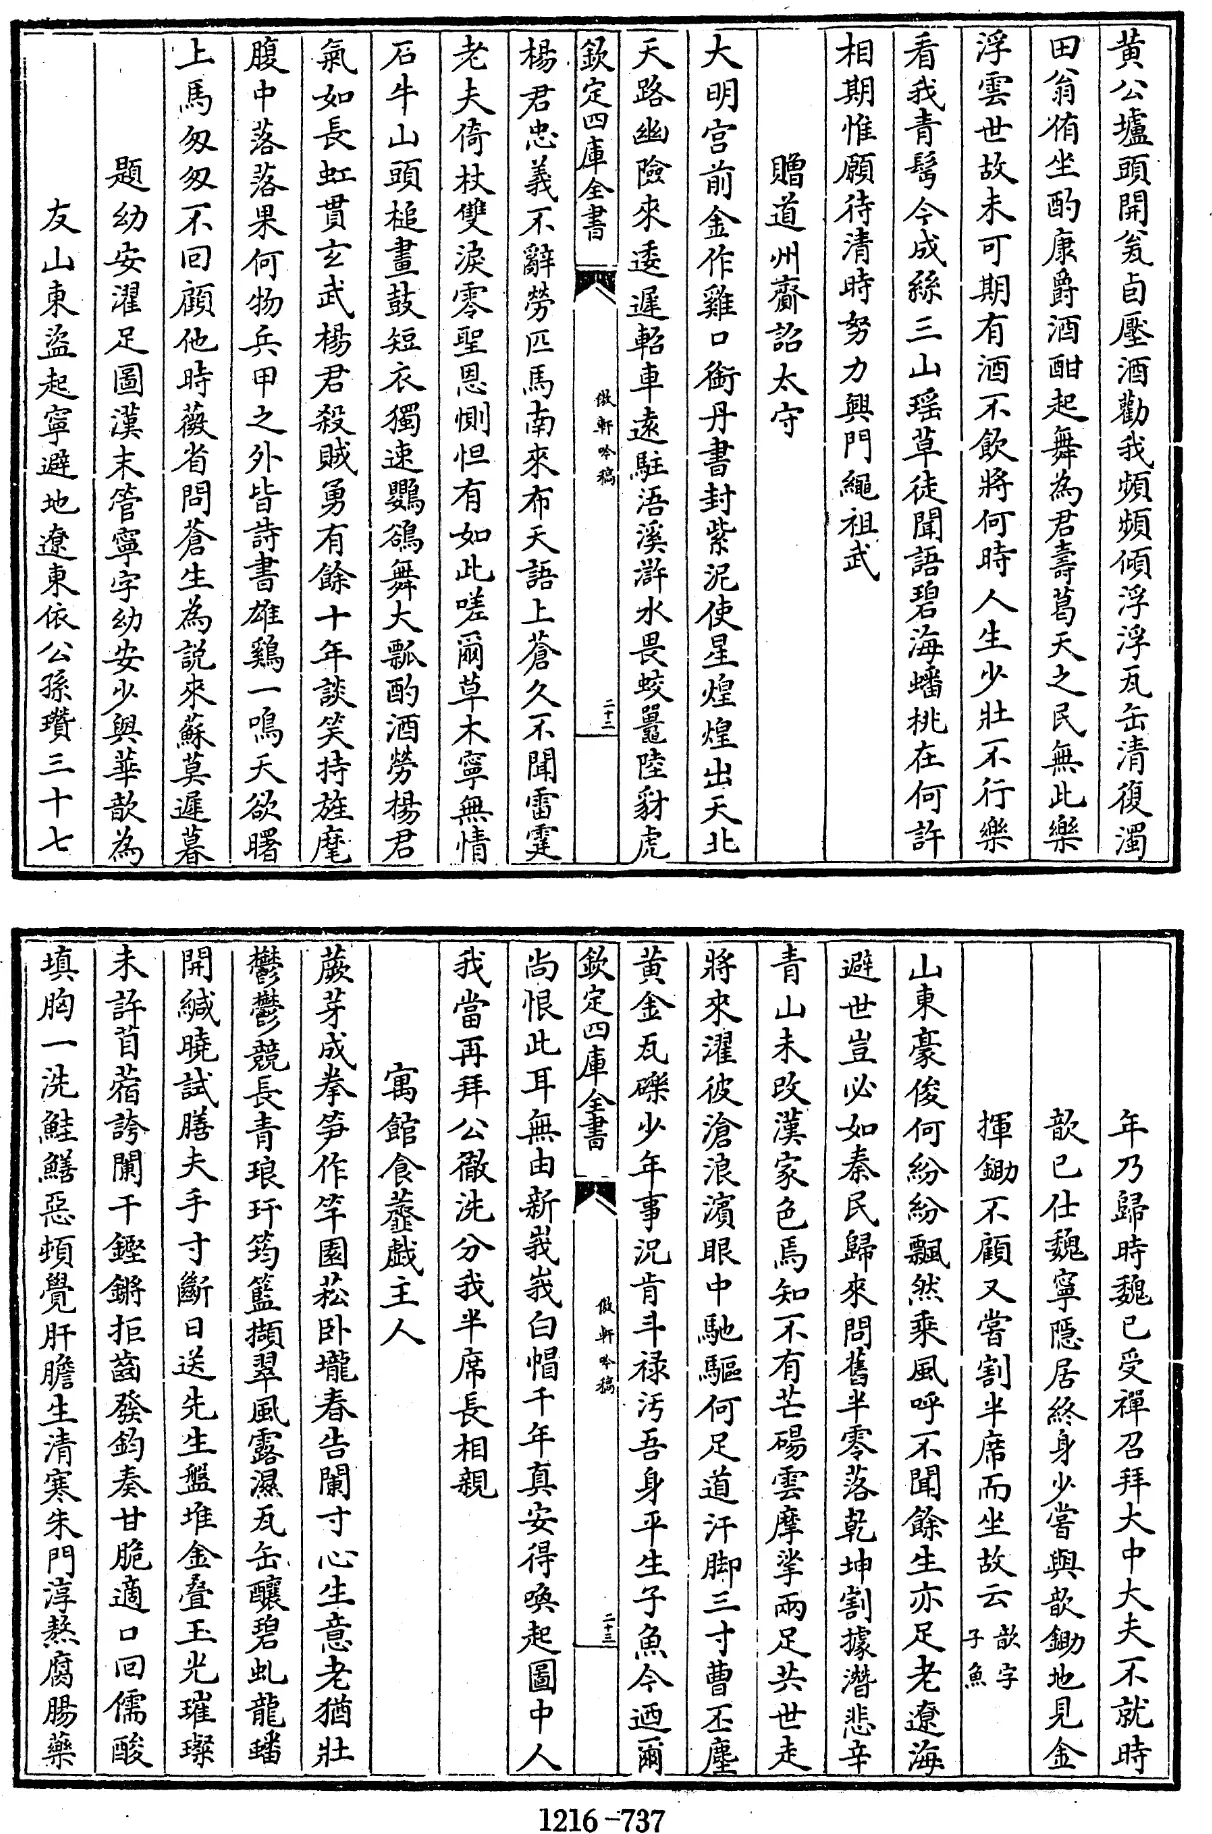 黄公壚頭開瓮卣壓酒勸我頻頻傾浮浮瓦缶清復濁
田翁侑坐酌康爵酒酣起舞為君壽葛天之民無此樂
浮雲世故未可期有酒不飲將何時人生少壯不行樂
看我青髩今成絲三山瑶草徒聞語碧海蟠桃在何許
相期惟願待清時努力興門繩祖武
贈道州齎詔太守
大明宫前金作雞口銜丹書封紫泥使星煌煌出天北
天路幽險來逶遲軺車遠駐浯溪滸水畏蛟鼉陸豺虎
欽定四庫全書
傲軒吟稿
二十二
楊君忠義不辭勞匹馬南來布天語上蒼久不聞雷霆
老夫倚杖雙淚零聖恩惻怛有如此嗟爾草木寧無情
石牛山頭槌畫鼓短衣獨速鸜鵒舞大瓢酌酒勞楊君
氣如長虹貫玄武楊君殺賊勇有餘十年談笑持旌麾
腹中落落果何物兵甲之外皆詩書雄鷄一鳴天欲曙
上馬匆匆不回顧他時薇省問蒼生為説來蘇莫遲暮
題幼安濯足圖漢末管寧字幼安少與華歆為
友山東盜起寧避地遼東依公孫瓚三十七
年乃歸時魏已受禪召拜大中大夫不就時
歆已仕魏寧隱居終身少嘗與歆鋤地見金
揮鋤不顧又嘗割半席而坐故云歆字子魚
山東豪俊何紛紛飄然乘風呼不聞餘生亦足老遼海
避世豈必如秦民歸來問舊半零落乾坤割據潛悲辛
青山未改漢家色焉知不有芒碭雲摩挲兩足共世走
將來濯彼滄浪濱眼中馳驅何足道汗脚三寸曹丕塵
黄金瓦礫少年事況肯斗禄汚吾身平生子魚今迺爾
欽定四庫全書
傲軒吟稿
二十三
尚恨此耳無由新峩峩白帽千年真安得喚起圖中人
我當再拜公徹洗分我半席長相親
寓館食虀戯主人
蕨芽成拳笋作竿園菘卧壠春告闌寸心生意老猶壯
鬱鬱競長青琅玕筠籃擷翠風露濕瓦缶釀碧虬龍蟠
開緘曉試膳夫手寸斷日送先生盤堆金疊玉光璀璨
未許苜蓿誇闌干鏗鏘拒齒發鈞奏甘脆適口回儒酸
填胸一洗鮭鱔惡頓覺肝膽生清寒朱門淳熬腐腸藥
1216-737